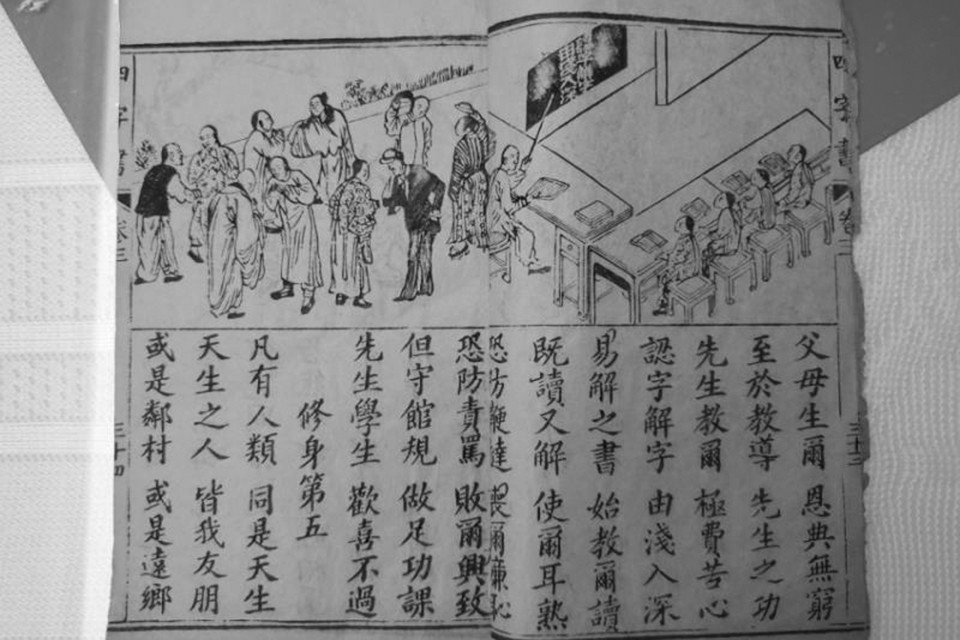 四字書
卷三
三十三
父母生爾 恩典無窮
至於教導 先生之功
先生教爾 極費苦心
認字解字 由淺入深
易解之書 始教爾讀
既讀又解 使爾耳熟
恐方鞭撻 喪爾廉恥
恐防責罵 敗爾興致
但守館規 做足功課
先生學生 歡喜不過
修身第五
凡有人類 同是天生
天生之人 皆我友朋
或是鄰村 或是遠鄉
四字書
卷三
三十四